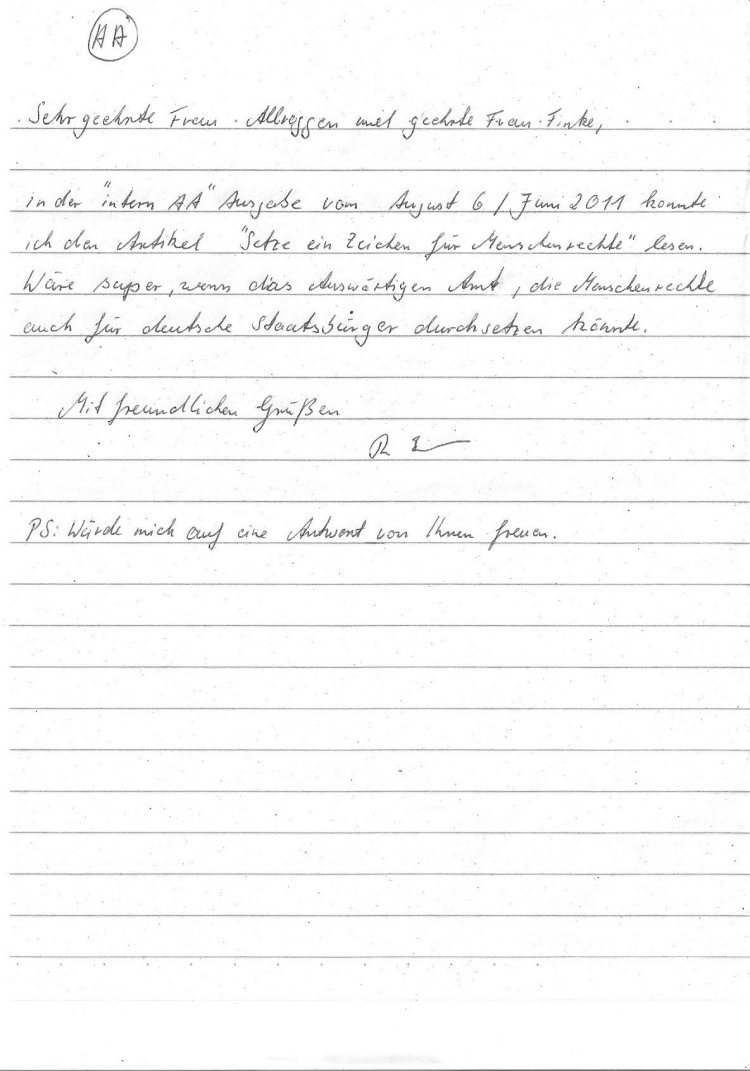 AA
Sehr geehrte Frau Allroggen und geehrte Frau Finke,
in der "intern AA" Ausgabe vom August 6 / Juni 2011 konnte
ich den Artikel "Setze ein Zeichen für Menschenrechte" lesen.
Wäre super, wenn das Auswärtigen Amt, die Menschenrechte
auch für deutsche Staatsbürger durchsetzen könnte.
Mit freundlichen Grüßen
PS: Würde mich auf eine Antwort von Ihnen freuen.